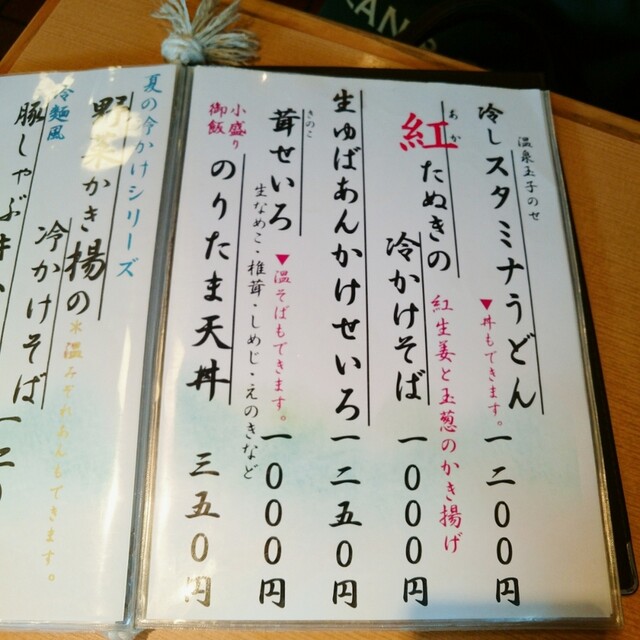 温泉玉子のせ
冷しスタミナうどん
▼丼もできます。
一二〇〇円
あか
紅たぬきの
冷かけそば
紅生姜と玉葱のかき揚げ
一〇〇〇円
生ゆばあんかけせいろ
一二五〇円
きのこ
茸せいろ
▼温そばもできます。
生なめこ・椎茸・しめじ・えのきなど
一〇〇〇円
小盛り
御飯
のりたま天丼
三五〇円
夏の冷かけシリーズ
野菜かき揚の
冷かけそば
*温みぞれあんもできます。
一二
冷麺風
豚しゃぶ